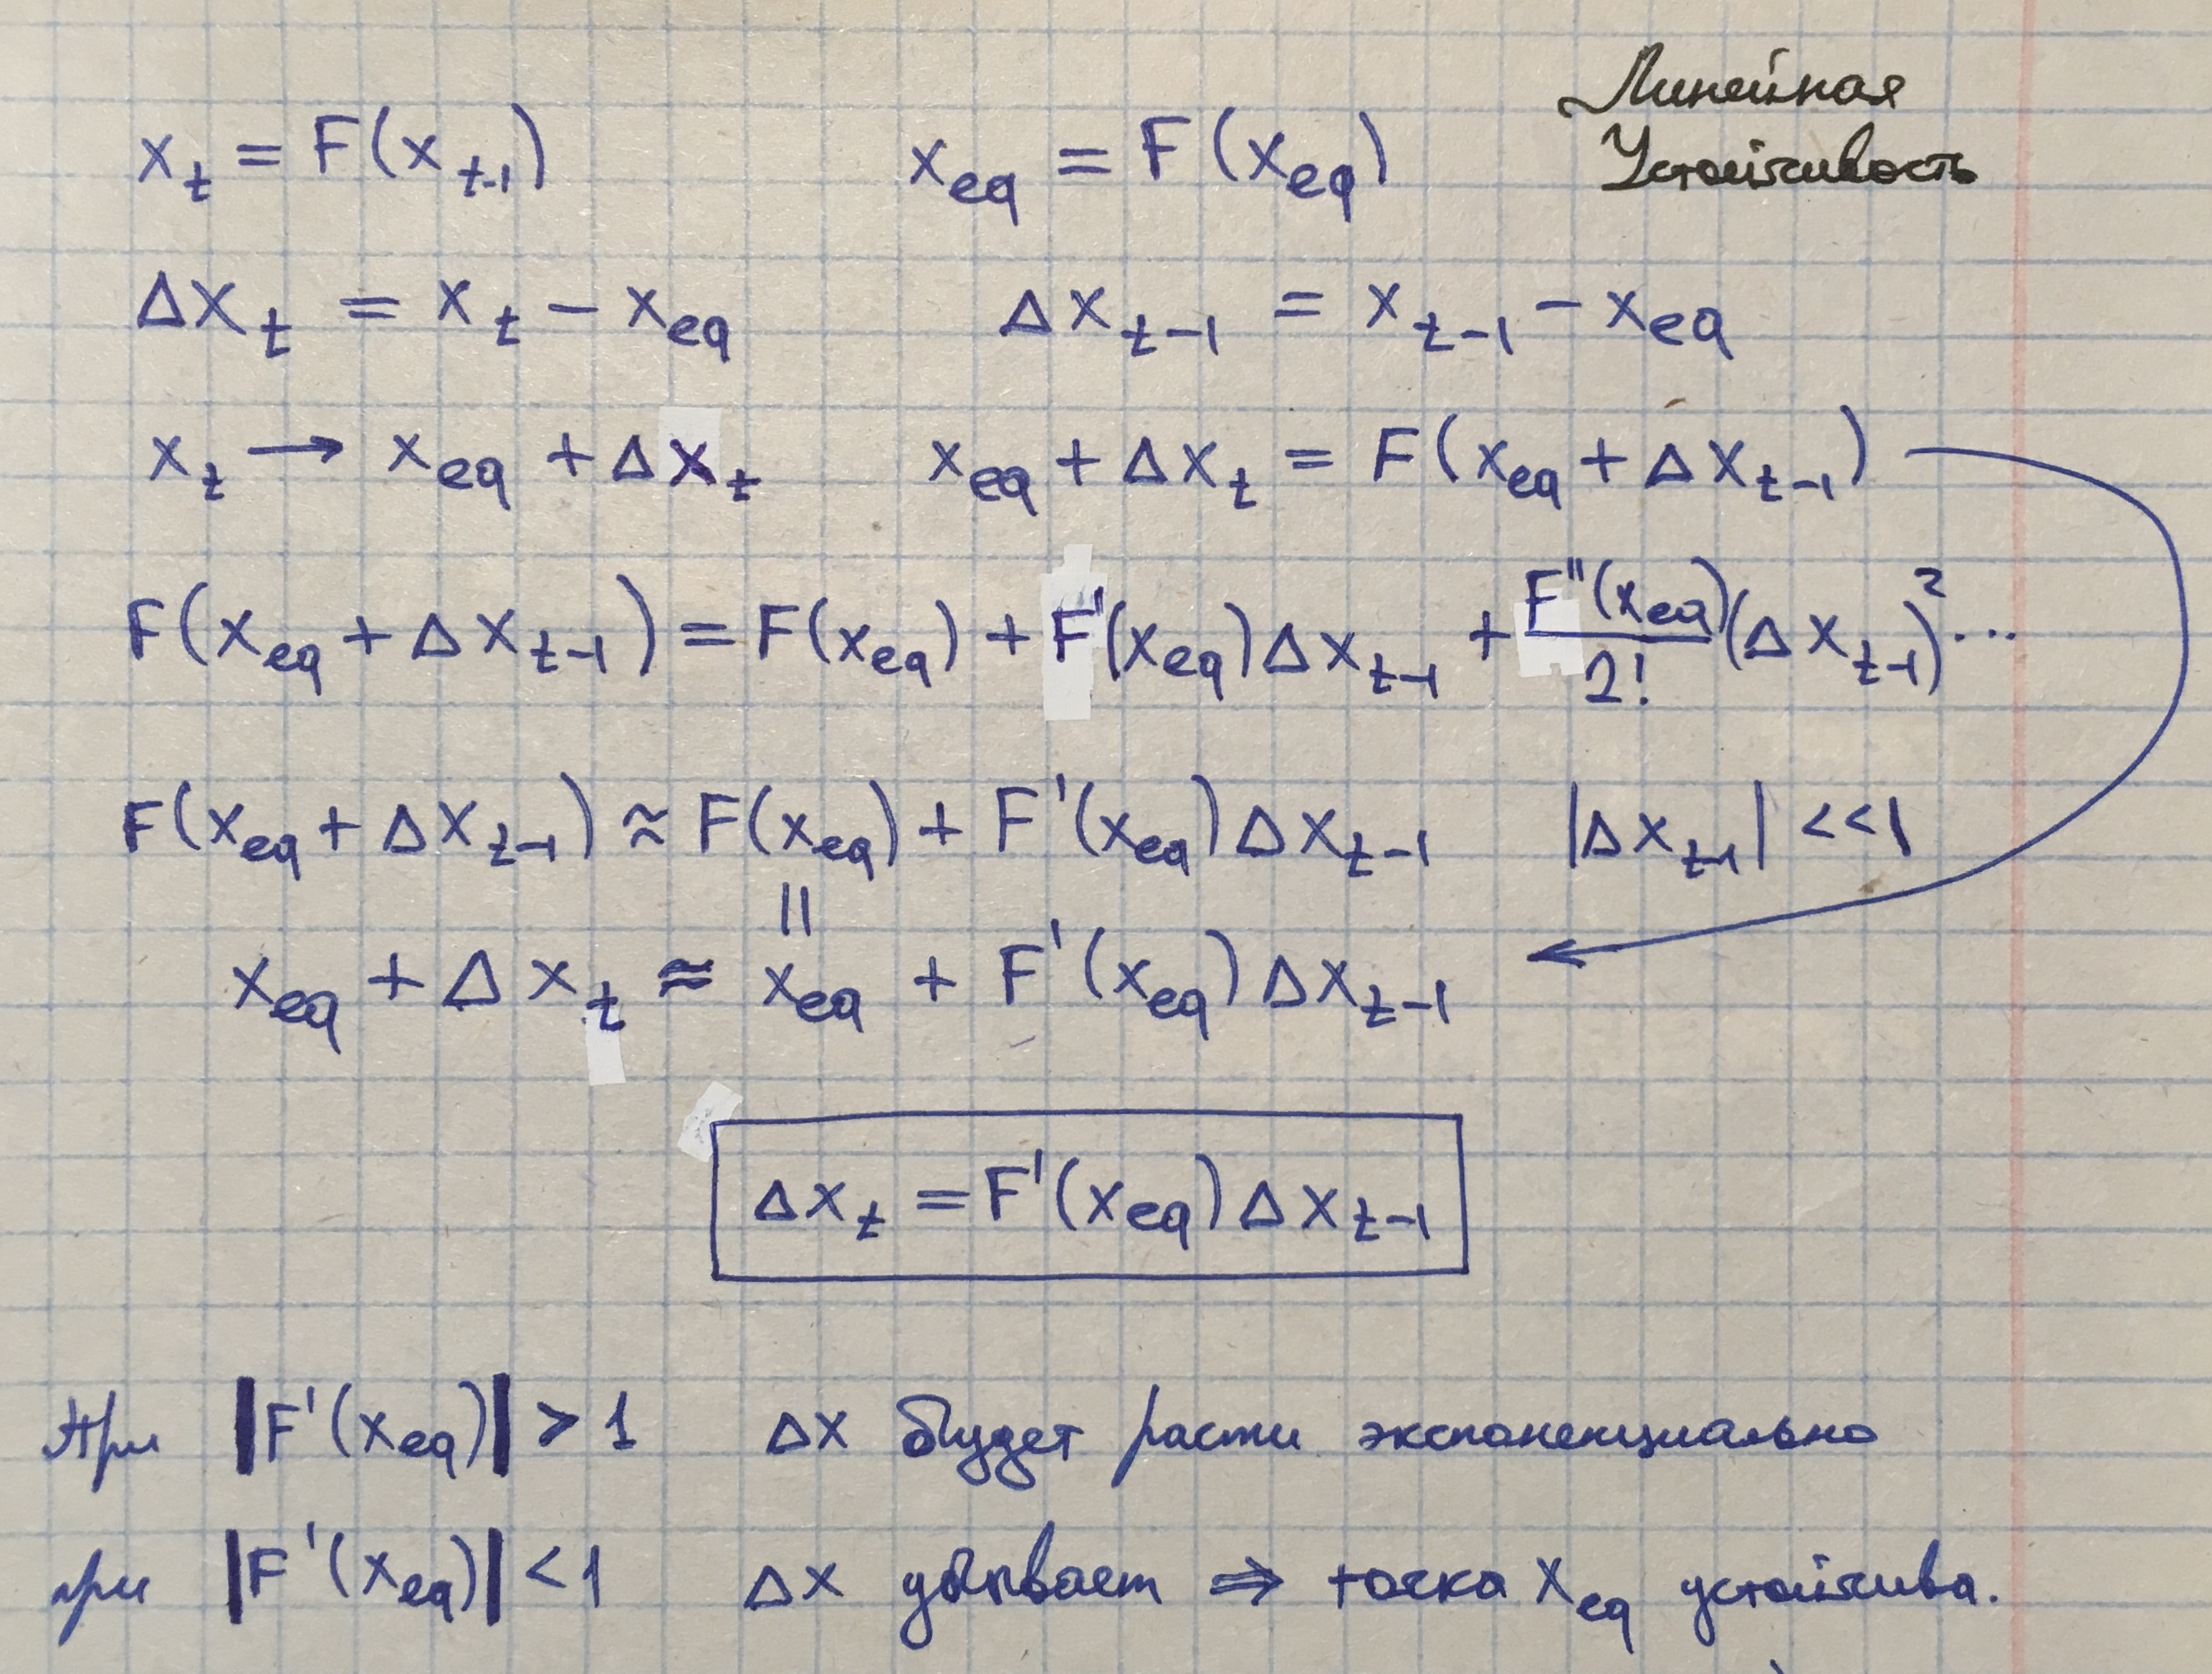 Линейная
Устойчивость
x_t = F(x_{t-1}) x_{eq} = F(x_{eq})
Δx_t = x_t − x_{eq} Δx_{t-1} = x_{t-1} − x_{eq}
x_t → x_{eq} + Δx_t x_{eq} + Δx_t = F(x_{eq} + Δx_{t-1})
F(x_{eq} + Δx_{t-1}) = F(x_{eq}) + F'(x_{eq})Δx_{t-1} + \frac{F''(x_{eq})}{2!}(Δx_{t-1})^2 ...
F(x_{eq} + Δx_{t-1}) ≈ F(x_{eq}) + F'(x_{eq})Δx_{t-1} |Δx_{t-1}| <<1
||
x_{eq} + Δx_t ≈ x_{eq} + F'(x_{eq})Δx_{t-1}
Δx_t = F'(x_{eq})Δx_{t-1}
при |F'(x_{eq})| > 1 Δx будет расти экспоненциально
при |F'(x_{eq})| < 1 Δx убывает ⇒ точка x_{eq} устойчива.